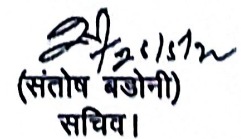 (संतोष बडोनी)
सचिव।